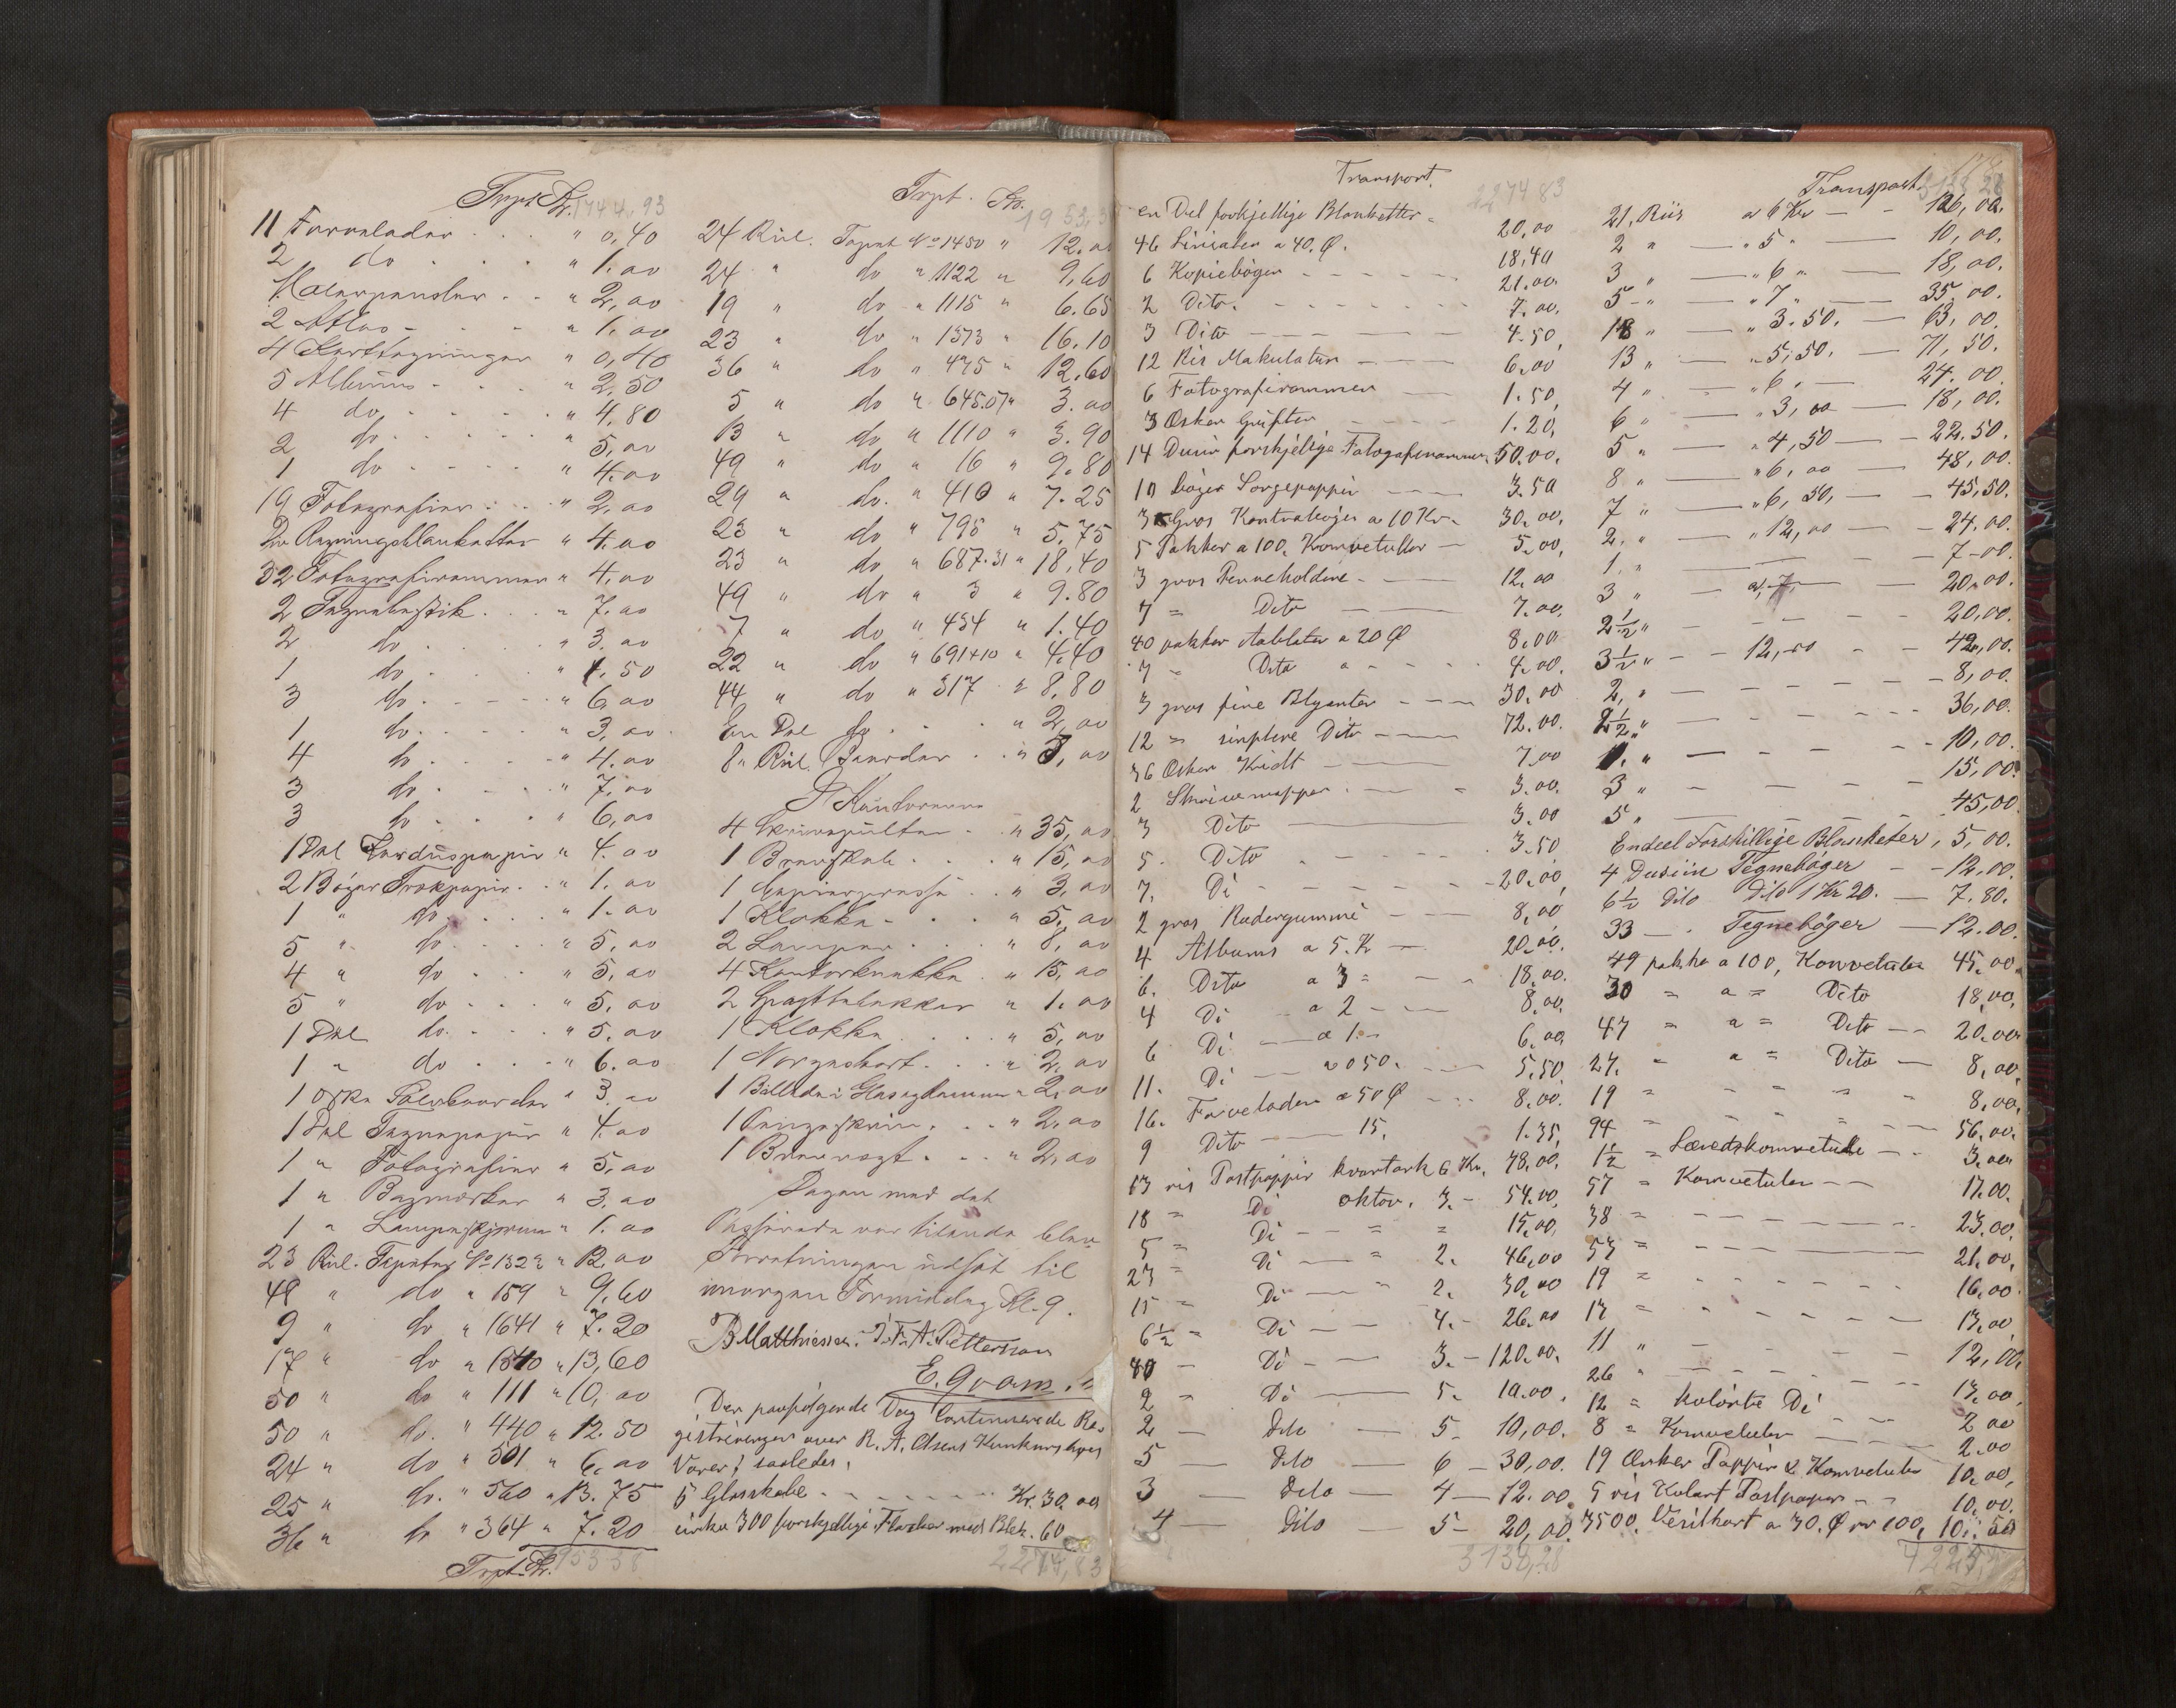 Trpt. Kr. 1744,93
11 Farvelader . . . " 0,40
2 do . . . . " 1.00
Malerpensler . . " 2,00
2 Atlas - . . - " 1.00
4 Karttegninger " 0,40
5 Albums - . . " 2,50
4 do. - . . . " 4,80
2 do. . . . . " 5,00
1 do - - - - " 4.00
19 Fotografier . . . " 2,00
Regningsblanketter " 4.00
32 Fotografirammer " 4,00
2 Tegnebestik . . . " 7.00
2 do . . . . " 3.00
1 do . . . . " 1.50
3 do . - - - " 6,00
1 do . . . . " 3.00
4 do . . . . " 4.00
3 do . . . . " 7.00
3 do . . . . " 6,00
1 Del Karduspapir " 4.00
2 Bøger Trækpapir . . " 1.00
1 " do . . . . " 1.00
5 " do . . . . " 5,00
4 " do . . . " 5,00
5 " do . . . " 5.00
1 Del do . . . . " 5.00
1 " do . . . " 6.00
1 Æske Sølvborder " 3.00
1 Del Tegnepapir " 4.00
1 " Fotografier " 5,00
1 " Bogmærker " 3.00
1 " Lampeskjerme " 1.00
23 Rul. Tapeter No 1323 " 12.00
48 " do " 159 " 9,60
9 " do " 1641 " 7.20
17 " do " 1340 " 13,60
50 " do " 111 " 10,00
50 " do. " 440 " 12.50
24 " do " 501 " 6.00
25 " do. " 560 " 13.75
36 " do " 364 " 7.20
Trpt. Kr. 1953 38
Trpt. Kr. 1953,38
24 Rul. Tapet No 1450 " 12.00
24 " do " 1122 " 9,60
19 " do " 1115 " 6.65
23 " do " 1373 " 16.10
36 " do " 475 " 12.60
5 " do " 645.07 " 3.00
13 " do " 1110 " 3.90
49 " do " 16 " 9.80
29 " do. " 410 " 7.25
23 " do " 795 " 5,75
23 " do " 687.31 " 18,40
49 " do " 3 " 9.80
7 " do " 454 " 1.40
22 " do " 691+10 " 4,40
44 " do " 317 " 8,80
En Del do . . " 2,00
8 Rul. Border . . " 3,00
I Kontorerne
4 Skrivepulter . . " 35,00
1 Brevskab . . . " 15,00
1 Kopierpresse . . " 3,00
1 Klokke - . . . " 5,00
2 Lamper . . . " 8,00
4 Kontorkrakke . " 15,00
2 " 1.00
1 Klokke . . . . " 5,00
1 Norgeskart . . . " 2,00
1 Billede i Glas og Ramme " 2,00
1 Pengeskrin . . . " 2,00
1 Brevvegt . . . " 2,00
Dagen med det
Passerede var tilende blev
Forretningen udsat til
imorgen Formiddag Kl. 9.
B Matthiessen. T. F. A. Petterson
E. Gram.
Den paafølgende Dag Continuerede Re-
gistreringen over R. A. Olsens Konkursboes
Varer saaledes,
5 Glasskabe - - - - - - Kr. 30,00
cirka 300 forskjellige Flasker med Blek. 60
2274,83
Transport. 2274 83
en Del forskjellige Blanketter - 20.00
46 Linialer a 40. Ø. 18,40
6 Kopiebøger - - - - - 21.00
2 Dito. - - - - - - 7.00,
3 Dito - - - - 4.50,
12 Ris Makulatur - - - - 6,00
6 Fotografirammer - - - 1.50,
3 Æsker Grifter - - - - 1.20,
14 Dusin forskjelige Fotografirammer 50.00,
10 bøger Sorgepappir - - - 3.50
3 Gros Kontrabøger a 10 Kr. 30.00,
5 Pakker a 100. Konvetutter - 5.00,
3 gros Penneholdere - - - 12.00
7 = Dito - - - 7.00,
40 pakker Oablater a 20 Ø 8,00
7 = Dito " - - - 4.00.
3 gros fine Blyanter - - - 30.00
12 = simplere Dito - - - 72.00.
36 Æsker Kridt - - - 7.00
2 Skrivemapper . - - - 3.00.
3 Dito - - - 3.00
5. Dito . - - - - 3.50
7. Di - - - - - 20.00,
2 gros Radergummi - - - 8,00
4 Albums a 5. Kr - 20.00.
6. Dito a 3 = - - 18,00.
4 Di a 2 - - - 8,00,
6 Di - a 1 - - 6,00,
11. Di - a 0 50. - - 5.50,
16. Farveladen a 50 Ø - - 8,00.
9 Dito - 15. 1.35,
13 ris Postpappir kvartark 6 Kr. 78,00,
18 = Di oktov. 3. - 54.00,
5 = Di - - = = 15.00,
23 = Di - - = 2. 46,00
15 = Di - - " 2. 30,00
6 1/2 = Di - - 4. - 26.00
40 - Di - - 3. - 120.00,
2 = Di - - 5. 10.00,
2 - Dito - 5 - 10,00.
5 - Dito - 6 - 30,00.
3 - Dito - 4 - 12.00
4 - Dito - 5 - 20,00
3138,28
Transport 3138 28
21, Riis a 6 Kr - - 126,00.
2 " - " 5 " - 10,00.
3 " - " 6 " - 18,00.
5 - " - " 7 " - 35,00.
18 " - " 3.50. - 63,00.
13 " - " 5,50. - 71,50.
4 " - " 6. - 24.00.
6 " - " 3,00 - 18,00.
5 " - " 4,50 - - 22.50.
8 " - " 6,00 48,00.
7 " - " 6,50, - - 45,50.
2. " - " 12,00 - - 24.00.
1. " - - 7-00.
3 " - a, 7, - 20,00.
2 1/2 " - - - - 20,00.
3 1/2 " - - 12,00 - - 42,00.
2, " - - - - - 8,00.
2 1/2 " - - - - - 36,00.
1. " - - - - 10,00.
3 " - - - - 15,00.
5 " - - - 45,00.
Endeel Forskillige Blanketer, 5,00.
4 Dusiin Tegnebøger - - 12,00.
6 1/2 Dito Dito 1 Kr 20. - 7.80.
33 - . Tegnebøger - 12.00.
49 pakke a 100, Konvetuler 45.00
30 = a = Dito 18,00,
47 = a = Dito - - 20.00
27. = a = Dito - 8,00,
19 = = = " " 8,00,
94 = - - - - 56,00.
1 1/2 = Lærredskonvetuler - - 3.00
57 = Konvetuler - - 17.00.
38 = - - - - - - 23.00,
53 = - - - 21,00,
19 = - - - - - 16,00.
17 = - - - - - 13,00,
11 " - - - - 12,00.
26 " - - - - 13,00,
12 = kolorte Di - - 2 00
8 = Konvetuler - - 2.00
19 Æsker Pappir & Konvetuler 10,00,
5 ris Kulørt Postpapir - - 10.00.
3500. Visitkort a 30. Ø pr 100, 10. 50